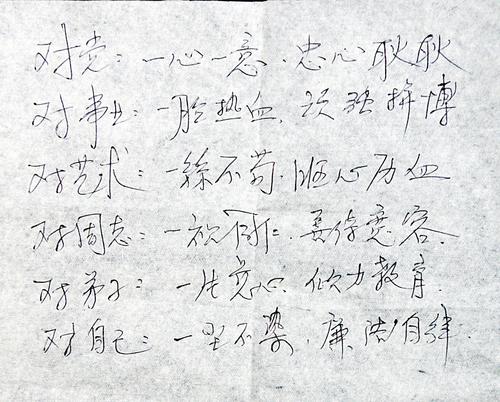 对党：一心一意、忠心耿耿
对事业：一腔热血，顽强拼博
对艺术：一丝不苟、呕心历血
对同志：一视同仁、宽容
对弟子：一片、倾力教育
对自己：一尘不染、廉洁自律